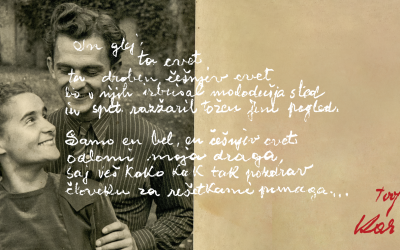 In glej,
ta cvet,
ta droben češnjev cvet
bo v njih izbrisal malodušja sled
in spet razžaril tožen jim pogled.
Samo en bel, en češnjev cvet
odlomi moja draga,
saj veš kako kak tak pozdrav
človeku za rešetkami pomaga...
tvoj